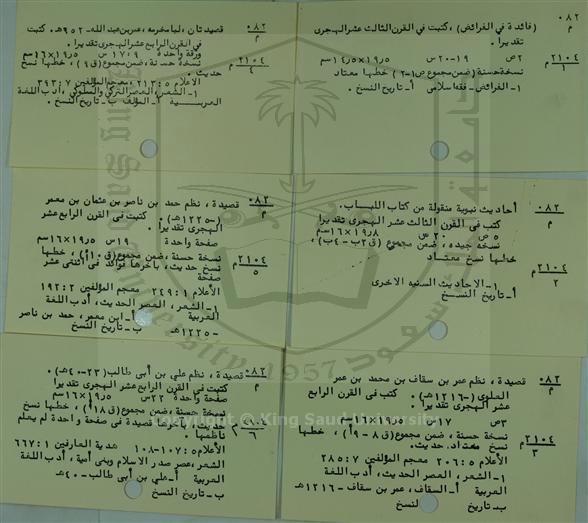 ٠٨٢
م
(فائدة في الفرائض) ، كتبت في القرن الثالث عشر الهجرى
تقديرا .
٢ص ١٩-٢٠ س ١٩٫٥×١٤٫٥سم
٢١٠٤م
١
نسخة حسنة (ضمن مجموع ص١-٢) خطها معتاد
١- الفرائض - فقه اسلامى أ- تاريخ النسخ .
٠٨٢
م
قصيدتان ، لبامخرمه ، عمربن عبد الله-٩٥٢هـ . كتبت
في القرن الرابع عشر الهجرى تقديرا .
ورقة واحدة ١٧:٩ س ١٩٫٥×١٦سم
٢١٠٤م
٤
نسخة حسنة ، ضمن مجموع (ق٩) ، خطها نسخ
حديث .
الأعلام ٥:٢١٣ ، معجم المؤلفين ٧:٢٩٣
١- الشعر ، العصر التركي والمملوكي ، أدب اللغة
العربية أ- المؤلف ب- تاريخ النسخ .
٠٨٢
م
أحاديث نبوية منقولة من كتاب اللباب .
كتب في القرن الثالث عشر الهجرى تقديرا
٥ ص ٢٠ س ١٩٫٨×١٦سم
نسخة جيده ، ضمن مجموع (ق٢ب-٤ب) ،
خطها نسخ معتاد
٢١٠٤م
٢
١- الاحاديث السنيه الاخرى
أ- تاريخ النسخ
٠٨٢
م
قصيدة ، نظم حمد بن ناصر بن عثمان بن معمر
(-١٢٢٥هـ) . كتبت في القرن الرابع عشر
الهجرى تقديرا .
صفحة واحدة ١٩س ١٩٫٥×١٦سم
٢١٠٤م
٥
نسخة حسنة ، ضمن مجموع (ق١٠أ) ، خطها
نسخ حديث ، بآخرها فوائد في اثنتى عشر
صفحة
الأعلام ١:٢٤٩ ، معجم المؤلفين ١٩٢:٢
١- الشعر ، العصر الحديث ، أدب اللغة
العربية أ- ابن معمر ، حمد بن ناصر
-١٢٢٥هـ ب- تاريخ النسخ
٠٨٢
م
قصيدة ، نظم عمر بن سقاف بن محمد بن عمر
العلوى (-١٢١٦هـ) . كتبت في القرن الرابع
عشر الهجرى تقديرا .
٣ص ١٧س ١٩٫٥×١٦سم
٢١٠٤م
٣
نسخة حسنة ، ضمن مجموع (ق٨-٩أ) ، خطها
نسخ معتاد . حديث .
الأعلام ٥:٢٠٦ معجم المؤلفين ٢٨٥:٧
١- الشعر ، العصر الحديث ، أدب اللغة
العربية أ- السقاف ، عمر بن سقاف-١٢١٦هـ
ب- تاريخ النسخ
٠٨٢
م
قصيدة ، نظم علي بن أبي طالب (٢٣-٤٠هـ) .
كتبت في القرن الرابع عشر الهجرى تقديرا
صفحة واحدة ٢٢س ١٩٫٥×١٦سم
٦
نسخة حسنة ، ضمن مجموع (ق١٨أ) ، خطها نسخ
حديث ، بآخرها قصيدة في صفحة واحدة لم يعلم
ناظمها .
الأعلام ٥:١٠٧-١٠٨ هدية العارفين ١:٦٦٧
الشعر ، عصر صدر الاسلام وبنى أمية ، أدب اللغة
العربية أ- علي بن أبي طالب-٤٠هـ
ب- تاريخ النسخ
Copyright © King Saud University
King Saud University
1957